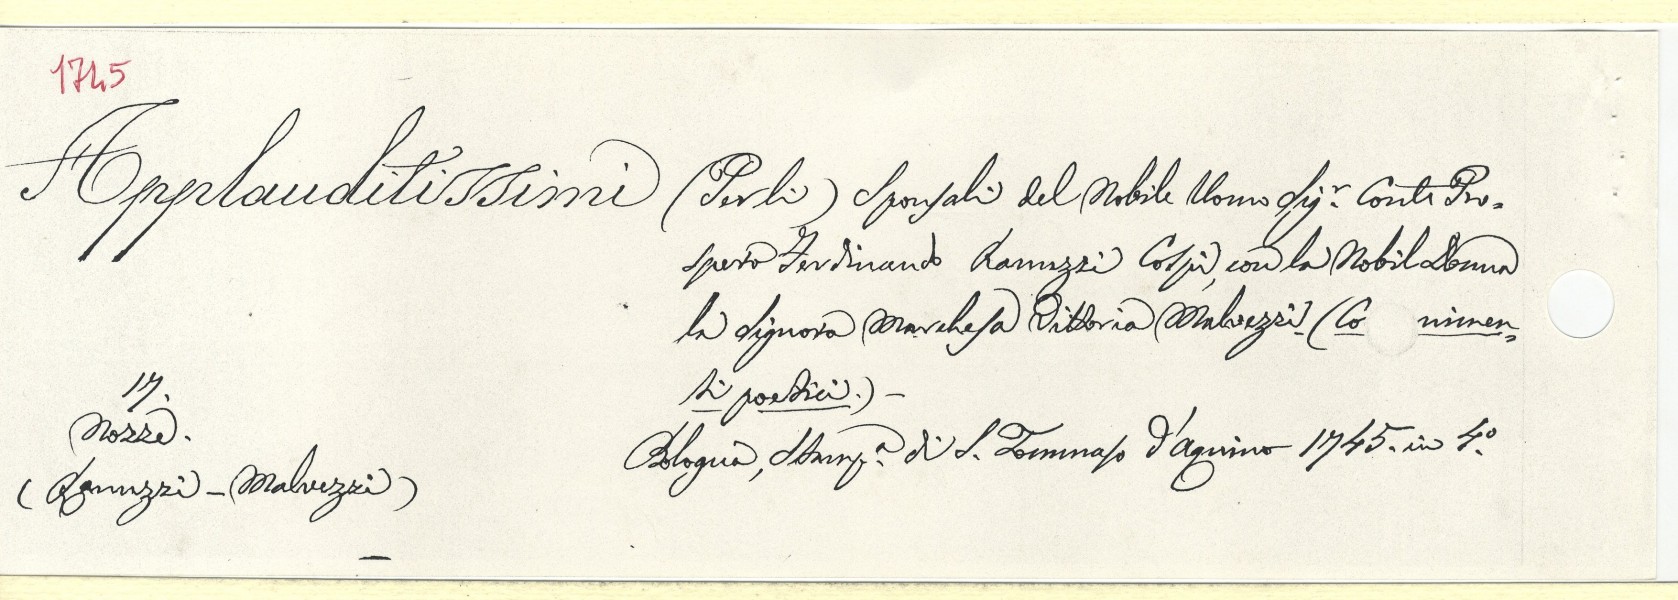 1745
Applauditissimi (Per li) Sponsali del Nobile Uomo Sigr. Conte Pro-
spero Ferdinando Ranuzzi Cospi, con la Nobil Donna
la Signora Marchesa Vittoria Malvezzi. (Co nimen-
ti poetici.) -
17.
Nozze.
Bologna, Stampa. di S. Tommaso d'Aquino 1745. in 4o.
(Ranuzzi - Malvezzi)